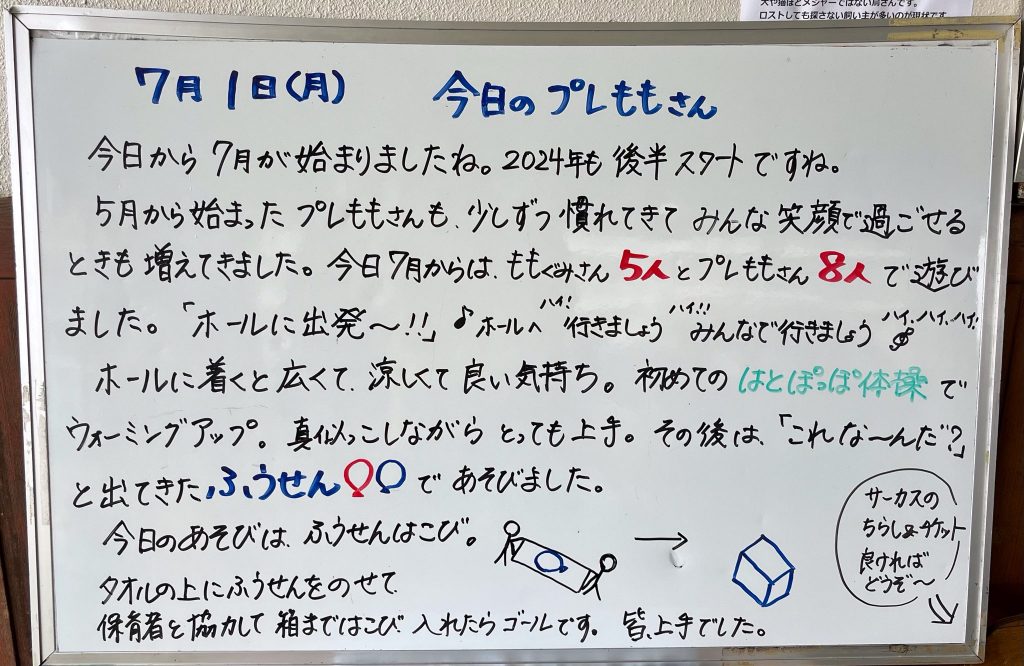 犬や猫ほどメジャーではない鳥さんです。
ロストしても探さない飼い主が多いのが現状です
7月1日(月) 今日のプレももさん
今日から7月が始まりましたね。2024年も後半スタートですね。
5月から始まったプレももさんも、少しずつ慣れてきてみんな笑顔で過ごせる
ときも増えてきました。今日7月からは、ももぐみさん5人とプレももさん8人で遊び
ハイ! ハイ!! ハイ、ハイ、ハイ!
ました。「ホールに出発〜!!」♪ホールへ行きましょう みんなで行きましょう
ホールに着くと広くて、涼しくて良い気持ち。初めてのはとぽっぽ体操で
ウォーミングアップ。真似っこしながらとっても上手。その後は、「これな〜んだ?」
と出てきたふうせんであそびました。
今日のあそびは、ふうせんはこび。
タオルの上にふうせんをのせて、
保育者と協力して箱まではこび入れたらゴールです。皆、上手でした。
サーカスの
ちらし&チケット
良ければ
どうぞ〜